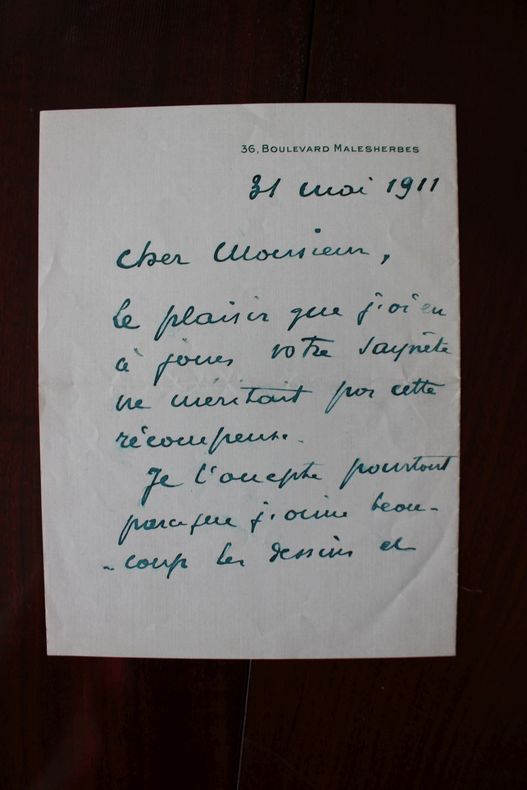 36, BOULEVARD MALESHERBES
31 mai 1911
Cher Monsieur,
Le plaisir que j'ai eu
à jouer votre Saynète
ne méritait pas cette
récompense.
Je l'accepte pourtant
parceque j'aime beau-
-coup les dessins et